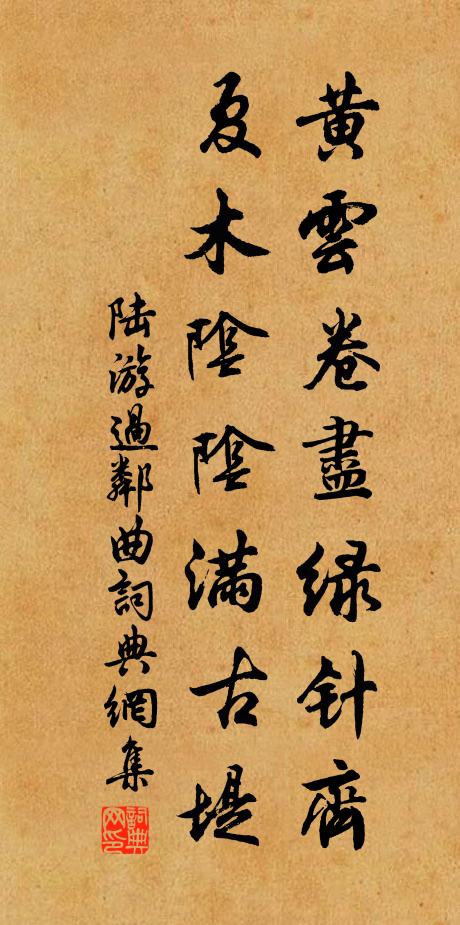 黄雲卷盡绿针齊
夏木陰陰滿古堤
陆游過鄰曲詞典網集
詞典网印